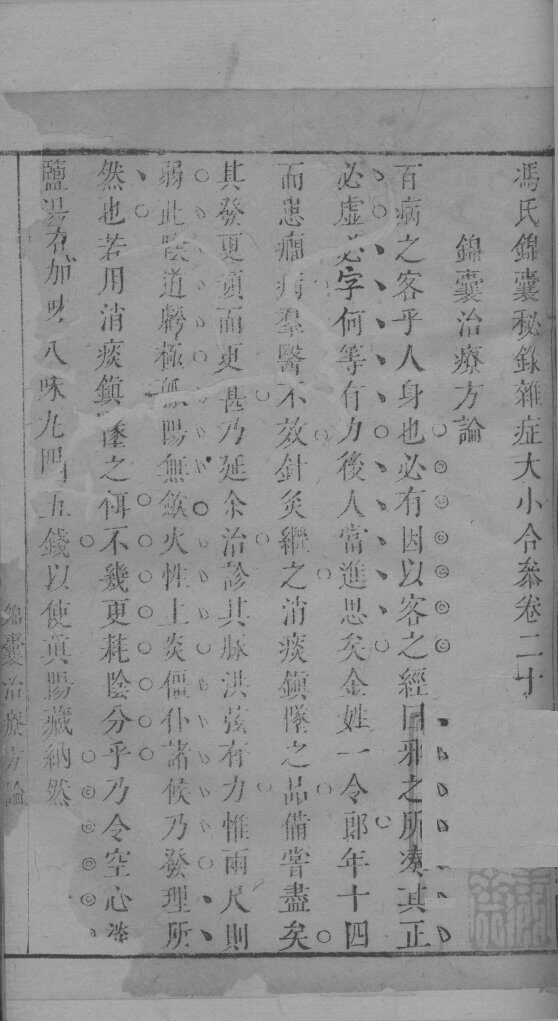 馮氏錦囊秘錄雜症大小合叅卷二十
錦囊治療方論
百病之客乎人身也必有因以客之經曰邪之所凑其正
必虛必字何等有力後人當進思矣金姓一令郎年十四
而患癎病羣醫不效針灸繼之消痰鎮墜之品備嘗盡矣
其發更頻而更甚乃延余治診其脉洪弦有力惟兩尺則
弱此陰道虧極孤陽無斂火性上炎僵仆諸候乃發理所
然也若用消痰鎮墜之餌不幾更耗陰分乎乃令空心淡
鹽湯加味八味丸四五錢以使眞陽藏納然
錦囊治療方論